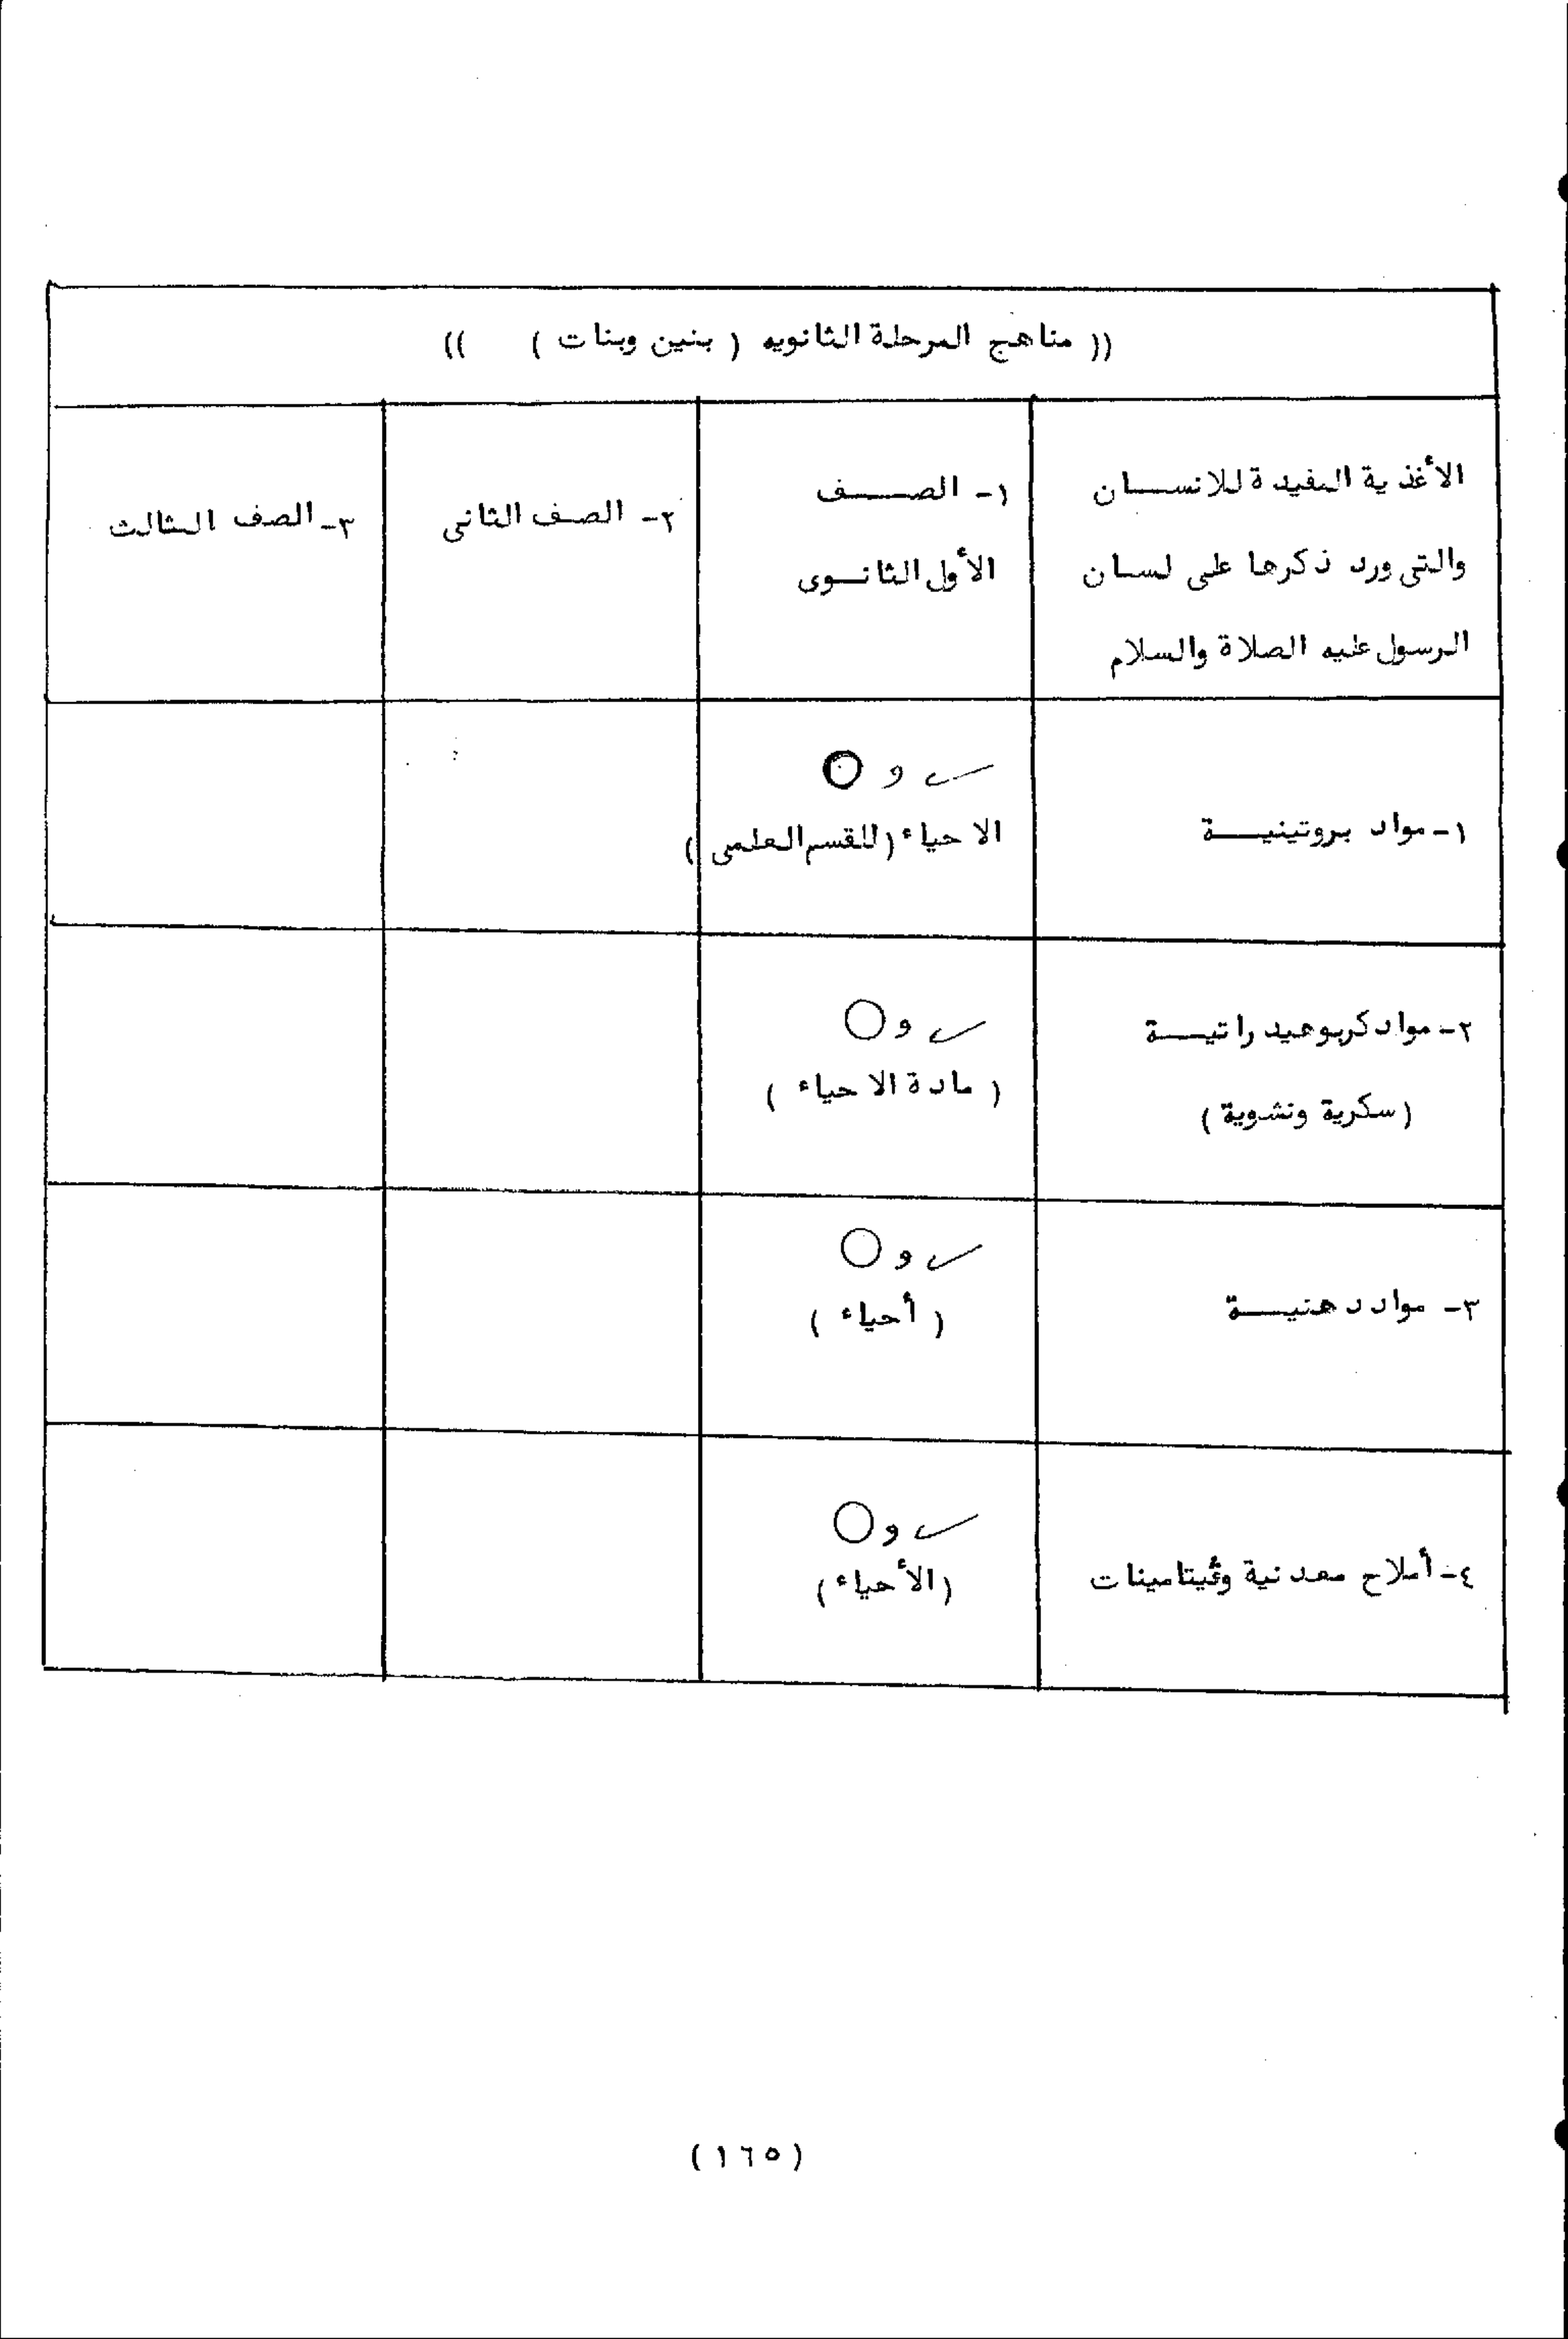 (( مناهج المرحلة الثانويه ( بنين وبنات ) ))
الأغذية المفيدة للانسان
والتى ورد ذكرها على لسان
الرسول عليه الصلاة والسلام
١- الصف
الأول الثانوى
٢- الصف الثانى
٣- الصف الثالث
١- مواد بروتينية
✓ و ○
الاحياء (للقسم العلمى)
٢- مواد كربوهيدراتية
(سكرية ونشوية)
✓ و ○
( مادة الاحياء )
٣- مواد دهنية
✓ و ○
( أحياء )
٤- أملاح معدنية وڤيتامينات
✓ و ○
(الأحياء)
(١٦٥)